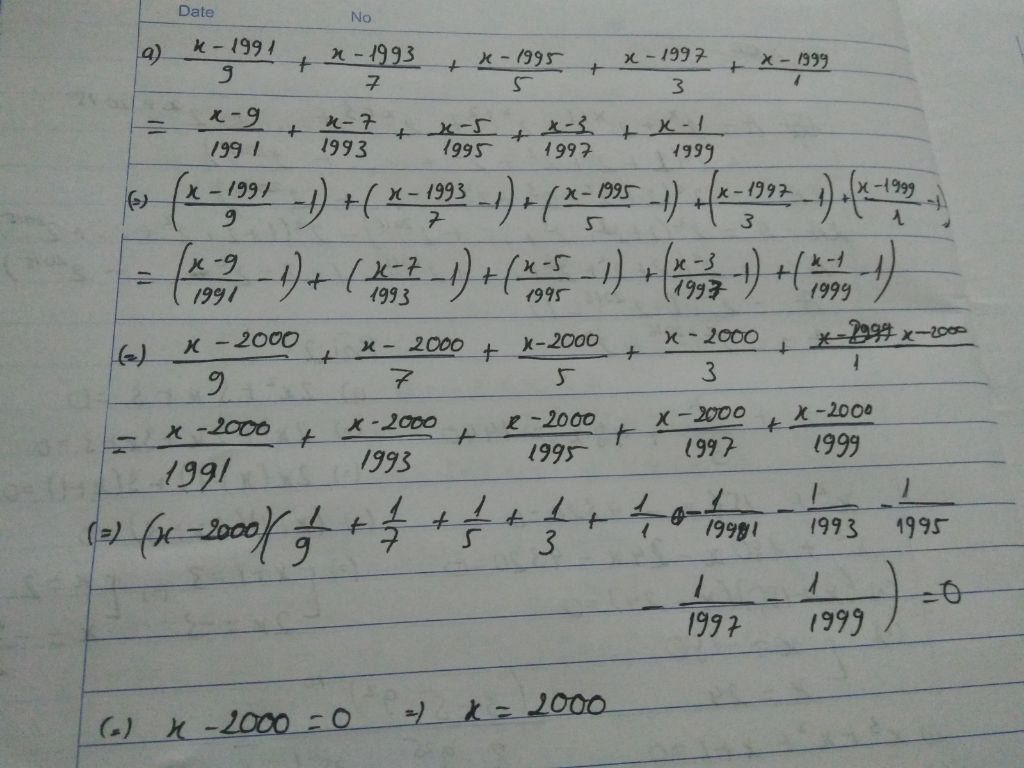 Date No
a) \frac{x-1991}{9} + \frac{x-1993}{7} + \frac{x-1995}{5} + \frac{x-1997}{3} + \frac{x-1999}{1}
= \frac{x-9}{1991} + \frac{x-7}{1993} + \frac{x-5}{1995} + \frac{x-3}{1997} + \frac{x-1}{1999}
(=) (\frac{x-1991}{9} -1) + (\frac{x-1993}{7} -1) + (\frac{x-1995}{5} -1) + (\frac{x-1997}{3} -1) + (\frac{x-1999}{1} -1)
= (\frac{x-9}{1991} -1) + (\frac{x-7}{1993} -1) + (\frac{x-5}{1995} -1) + (\frac{x-3}{1997} -1) + (\frac{x-1}{1999} -1)
(=) \frac{x-2000}{9} + \frac{x-2000}{7} + \frac{x-2000}{5} + \frac{x-2000}{3} + \frac{x-2000}{1}
= \frac{x-2000}{1991} + \frac{x-2000}{1993} + \frac{x-2000}{1995} + \frac{x-2000}{1997} + \frac{x-2000}{1999}
(=) (x-2000)(\frac{1}{9} + \frac{1}{7} + \frac{1}{5} + \frac{1}{3} + \frac{1}{1} - \frac{1}{1991} - \frac{1}{1993} - \frac{1}{1995}
- \frac{1}{1997} - \frac{1}{1999}) = 0
(=) x - 2000 = 0 => x = 2000